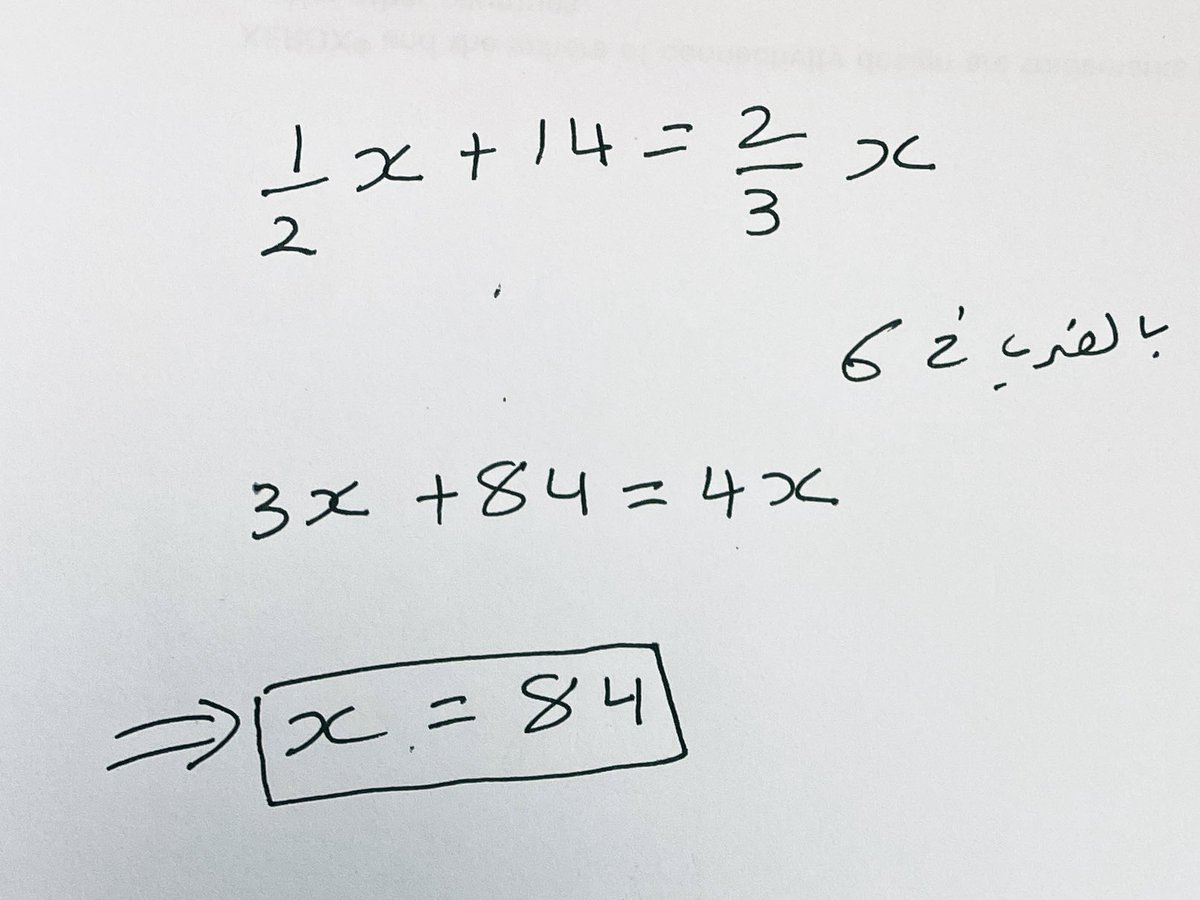 1/2 x + 14 = 2/3 x
بالضرب في 6
3x + 84 = 4x
⇒ x = 84